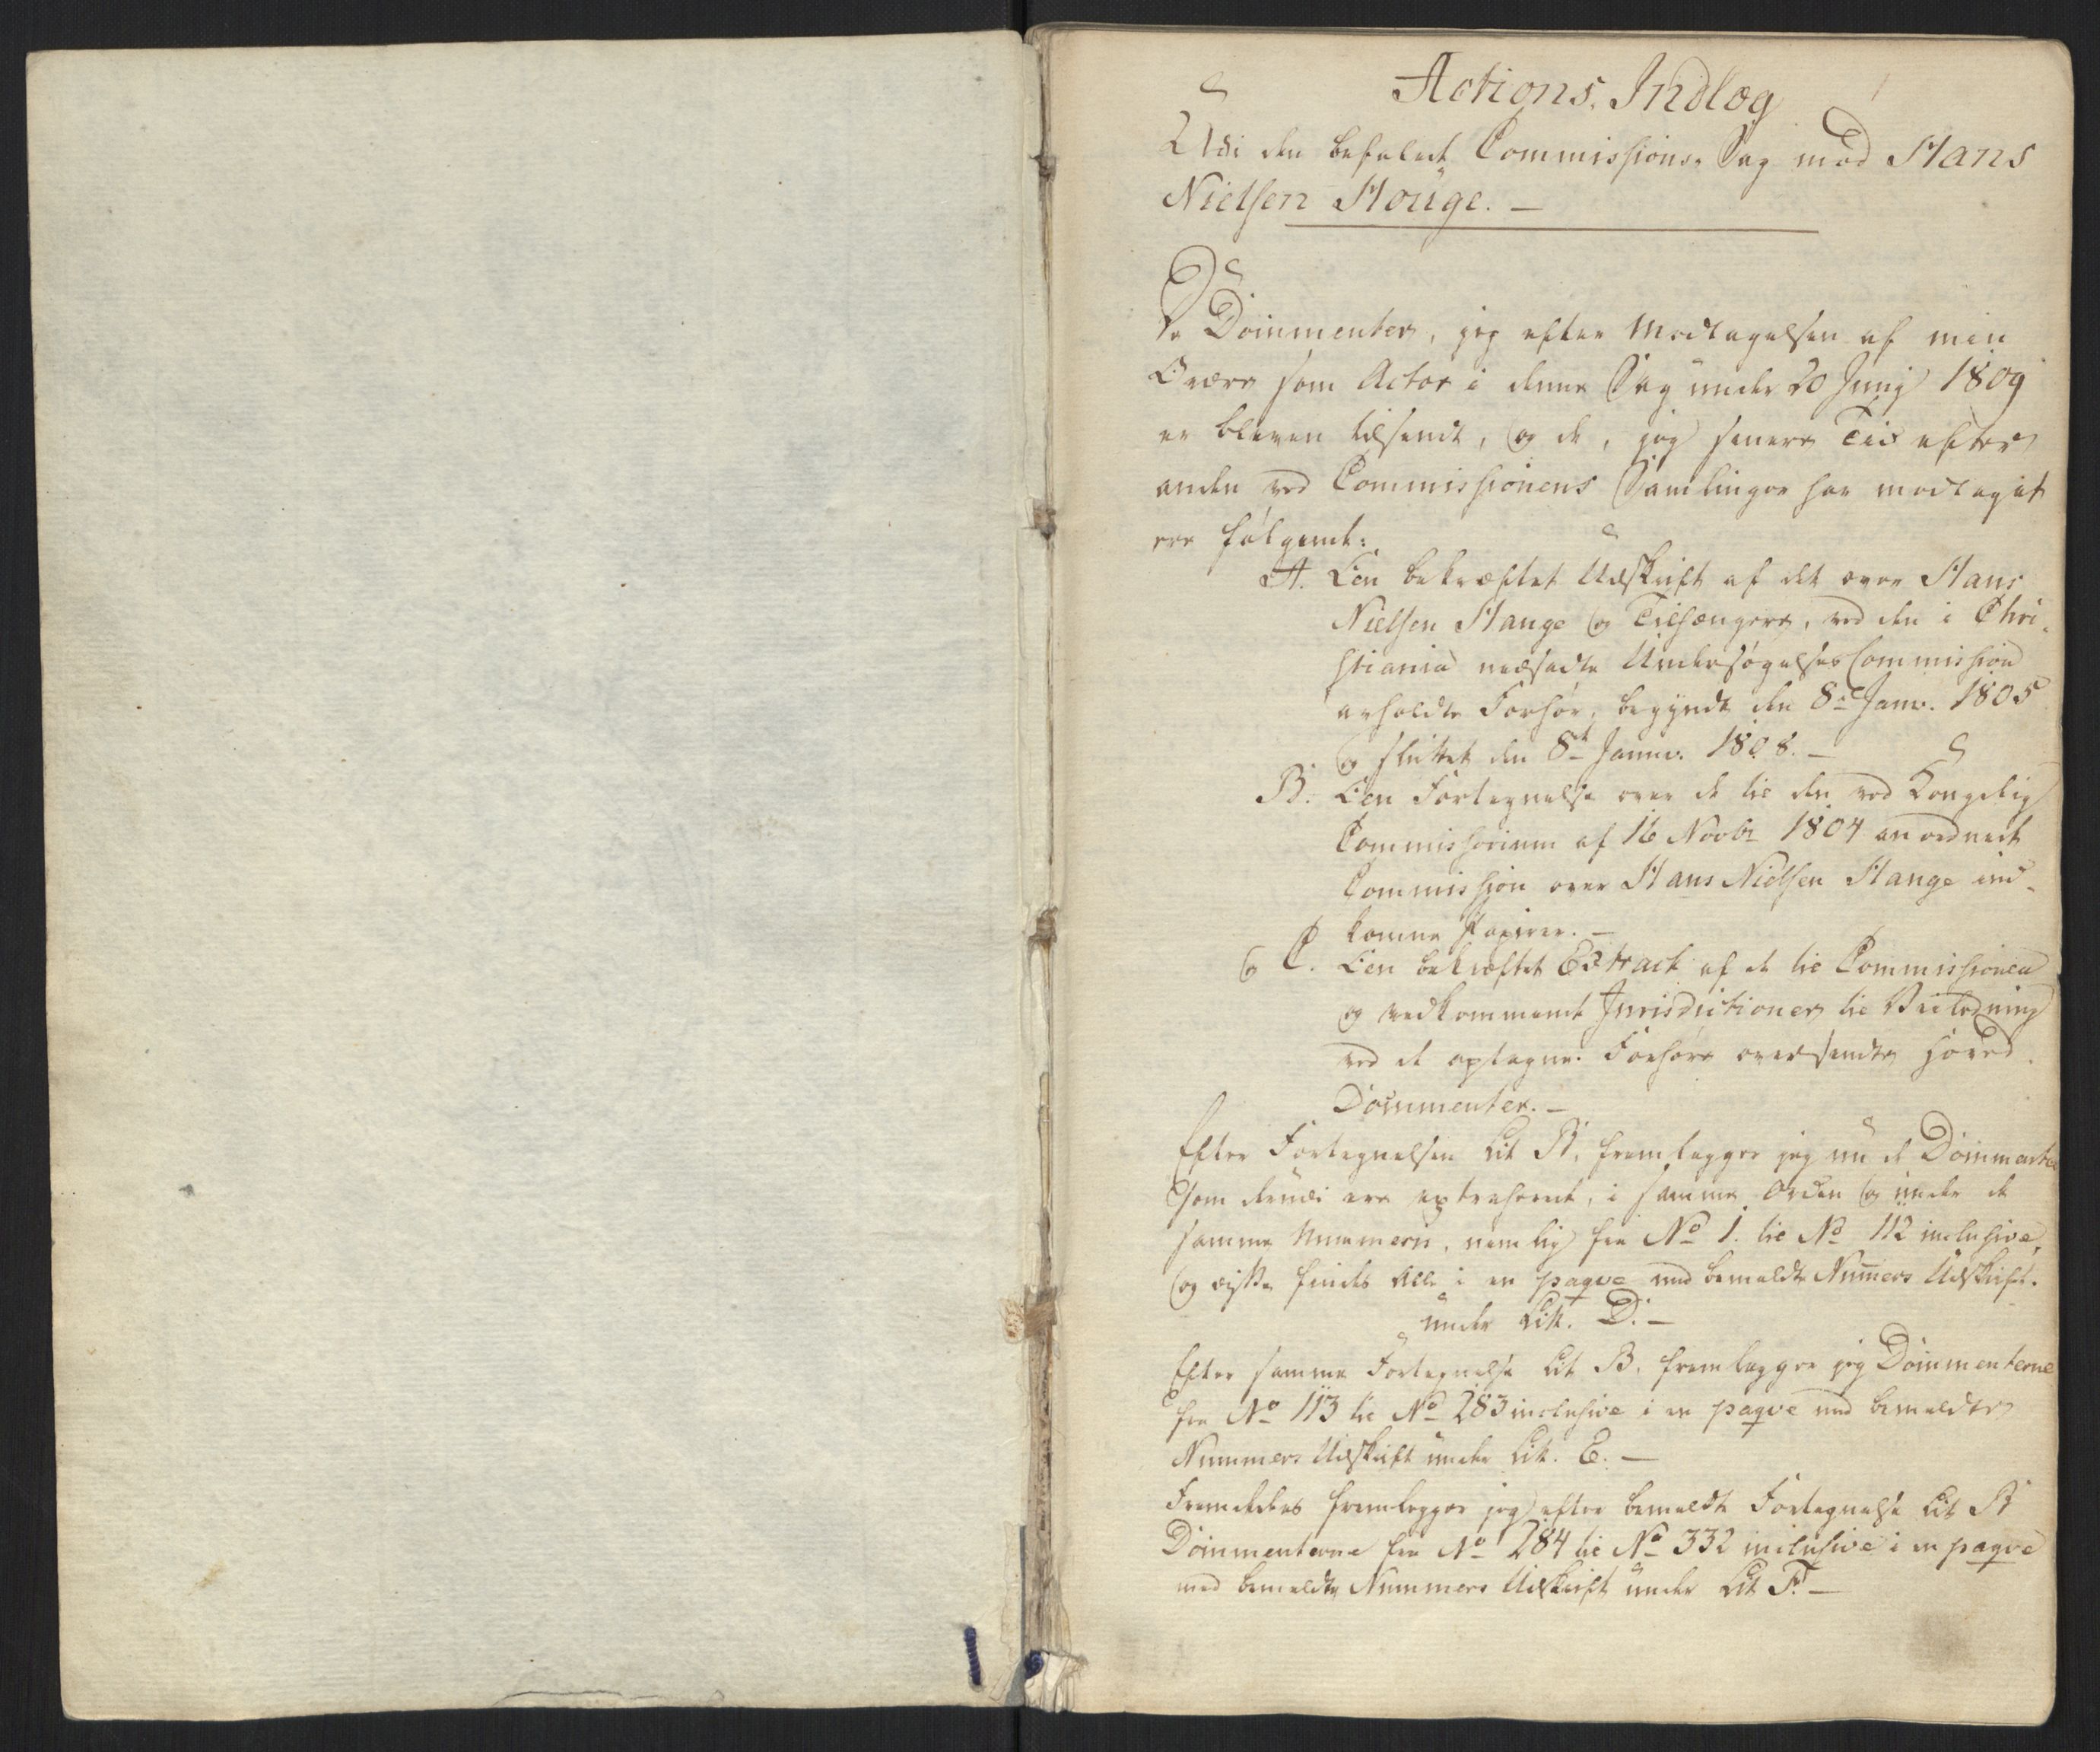 Actions-Indlæg
Udi den befalede Commissions-Sag mod Hans
Nielsen Houge. —
De Documenter, jeg efter Modtagelsen af min
Ordre som Actor i denne Sag under 20 Junij 1809
er bleven tilsendt, og de, jeg senere Tid efter
anden ved Commissionens Samlinger har modtaget
ere følgende:
A. Een bekræftet Udskrift af det over Hans
Nielsen Hauge og Tilhængere, ved den i Chri-
stiania nedsadte Undersøgelses Commission
afholdte Forhør, begyndt den 8de Janv. 1805
og sluttet den 8de Januv. 1808. —
B. Een Fortegnelse over de til den ved Kongelig
Commissorium af 16 Novbr 1804 anordnede
Commission over Hans Nielsen Hauge ind-
komne Papirer. —
og C. Een bekræftet Extract af de til Commissionen
og vedkommende Jurisdictioner til Veiledning
ved de optagne Forhøre oversendte Hoved-
Documenter. —
Efter Fortegnelsen Lit B. fremlægger jeg nu de Documenter
som derudi ere extraherede, i samme Orden og under de
samme Nummere, nemlig fra No 1. til No 112 inclusive,
og disse findes alle i en paqve med bemeldte Numers Udskrift
under Litr. D. —
Efter samme Fortegnelse Lit B. fremlægger jeg Documenterne
fra No 113 til No 283 inclusive i en paqve med bemeldte
Nummers Udskrift under Litr. E. —
Fremdeles fremlægger jeg efter bemeldte Fortegnelse Lit B
Documenterne fra No 284 til No 332 inclusive i en paqve
med bemeldte Nummers Udskrift under Lit F. —